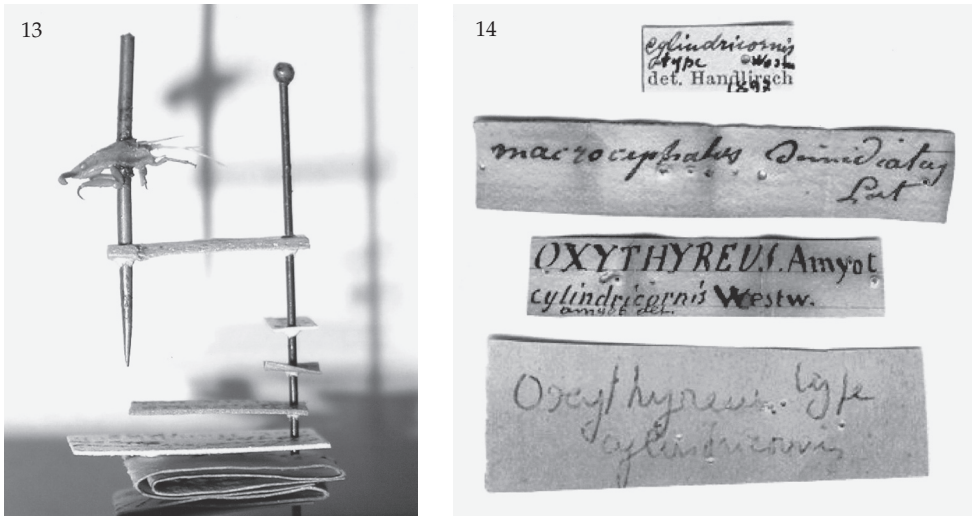 13
14
cylindricornis
type Westw
det. Handlirsch
1897
macrocephalus dimidiatus
OXYTHYREUS. Amyot
cylindricornis Westw.
amyot det.
Oxythyreus type
cylindricornis